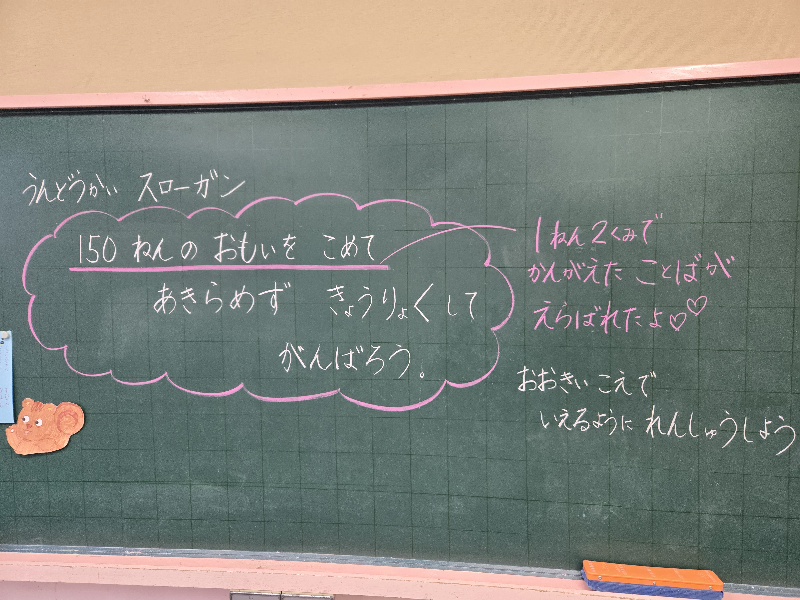 うんどうかい スローガン
150 ねんの おもいを こめて
あきらめず きょうりょくして
がんばろう。
1ねん2くみで
かんがえた ことばが
えらばれたよ♡♡
おおきい こえで
いえるように れんしゅうしよう